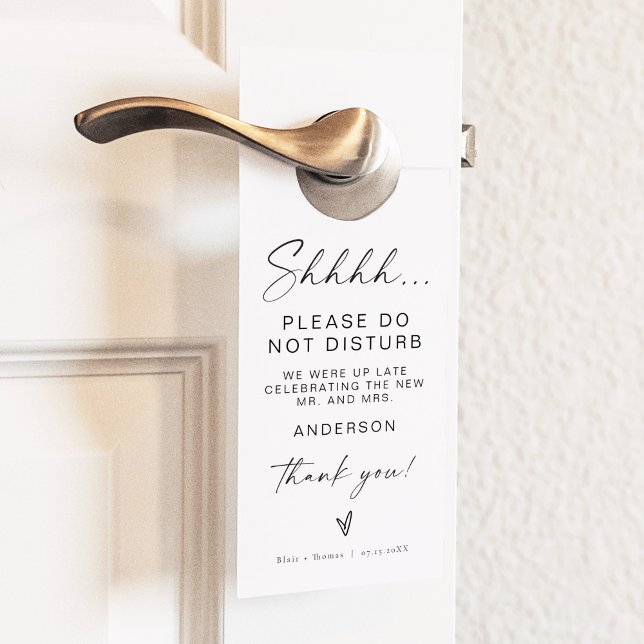 Shhhh...
PLEASE DO
NOT DISTURB
WE WERE UP LATE
CELEBRATING THE NEW
MR. AND MRS.
ANDERSON
Thank you!
Blair + Thomas | 07.15.20XX